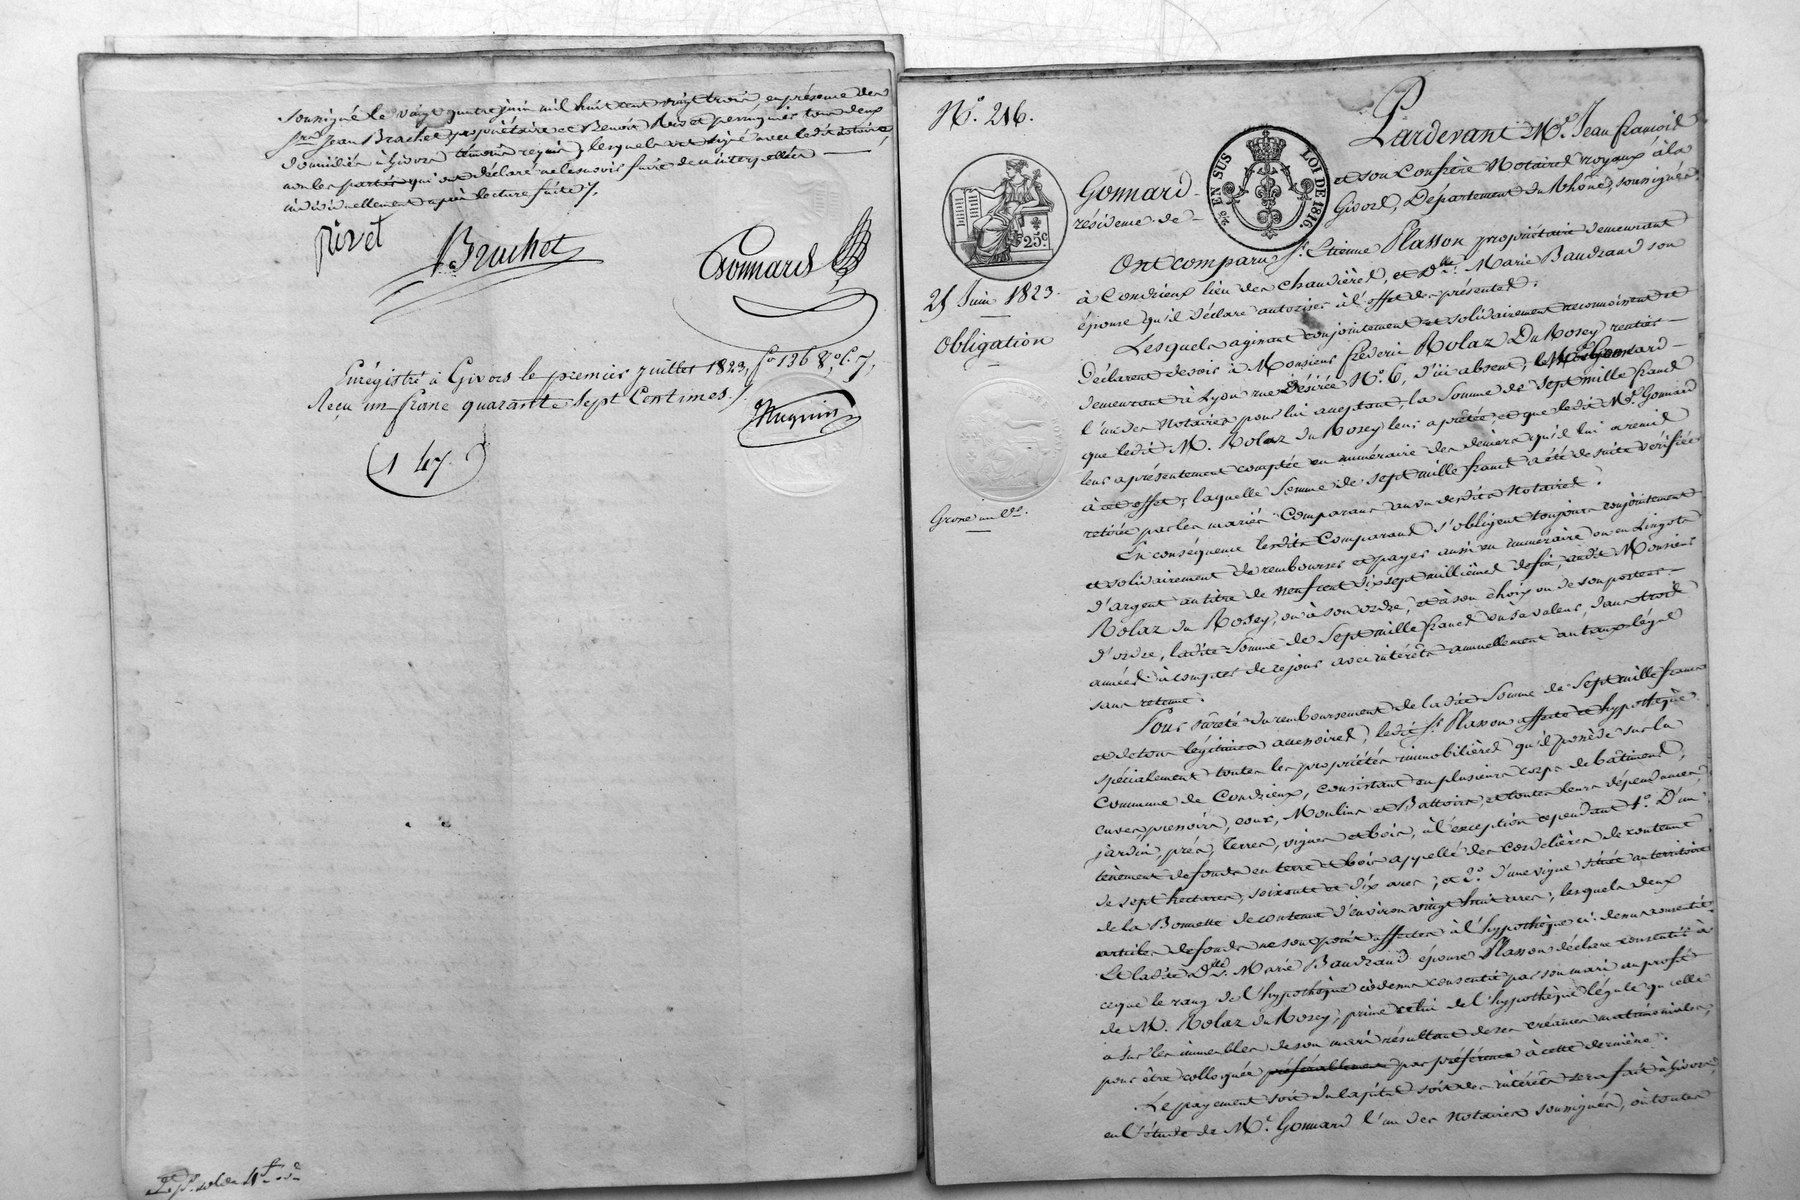 soussigné le vingt quatre juin mil huit cent vingt trois, en présence des
Srs. Jean Brachet propriétaire et Benoit Rivet perruquier tous deux
domiciliés à Givors témoins requis, lesquels ont signé avec ledit notaire,
non les parties qui ont déclaré ne le savoir faire de ce interpellées
individuellement après lecture faite.
Rivet
Brachet
Gonnard
Enrégistré à Givors le premier juillet 1823, fo. 136 Vo. C. 7,
Reçu un franc quarante sept Centimes.
Huguin
1 47.
No. 216.
25c
EN SUS
LOI DE 1816.
25 Juin 1823.
Obligation
Grosse
Pardevant Me. Jean françois
Gonnard et son Confrère Notaires royaux à la
résidence de Givors, Département du Rhône, soussignés.
Ont comparu Sr. Etienne Plasson propriétaire demeurant
à Condrieux lieu des Chaudières, et Dlle. Marie Baudrand son
épouse qu'il déclare autoriser à l'effet des présentes.
Lesquels agissant conjointement et solidairement reconnoissent et
Déclarent devoir à Monsieur fréderic Rolaz Du Rosey rentier
demeurant à Lyon rue Désirée No. 6, d'ici absent, Me. Gonnard
l'un des Notaires pour lui acceptant, la Somme de Sept mille francs
que ledit M. Rolaz du Rosey leur a prêtée, et que ledit Me. Gonnard
leur a présentement comptée en numéraire des deniers qu'il lui a remis
à cet effet, laquelle Somme de sept mille francs a été de suite vérifiée
retirée par les mariés Comparans au vu desdits Notaires.
En conséquence lesdits Comparans s'obligent toujours conjointement
et solidairement de rembourser et payer aussi en numéraire ou en Lingots
d'argent au titre de neuf cent dix sept millièmes de fin, audit Monsieur
Rolaz du Rosey, ou à son ordre, et à son choix ou de son porteur
d'ordre, ladite Somme de Sept mille francs ou sa valeur, dans trois
années à compter de ce jour avec intérêts annuellement au taux légal
sans retenue.
Pour sûreté du remboursement de ladite Somme de Sept mille francs
et de tous légitimes accessoires, ledit Sr. Plasson affecte et hypothèque
spécialement toutes les propriétés immobilières qu'il possède sur la
Commune de Condrieux, consistant en plusieurs corps de bâtimens,
cuves, pressoirs, cour, Moulins et Battoirs, et toutes leurs dépendances,
jardin, prés, terres, vignes et bois, à l'exception cependant 1o. D'un
tènement de fonds en terre et bois appellé des Cordelières de contenue
de sept hectares, soixante et dix ares; et 2o. d'une vigne située au territoire
de la Bonnette de contenue d'environ vingt huit ares, lesquels deux
articles de fonds ne sont point affectés à l'hypothèque ci-dessus consentie.
Et ladite Dlle. Marie Baudrand épouse Plasson déclare consentir à
ce que le rang de l'hypothèque cidessus consentie par son mari au profit
de M. Rolaz du Rosey, prime celui de l'hypothèque légale qu'elle
a sur les immeubles de son mari résultant de ses créances matrimoniales,
pour être colloquée préférablement par préférence à cette dernière.
Le payement soit du capital soit des intérêts sera fait à Givors,
en l'étude de Me. Gonnard l'un des Notaires soussignés, où toutes